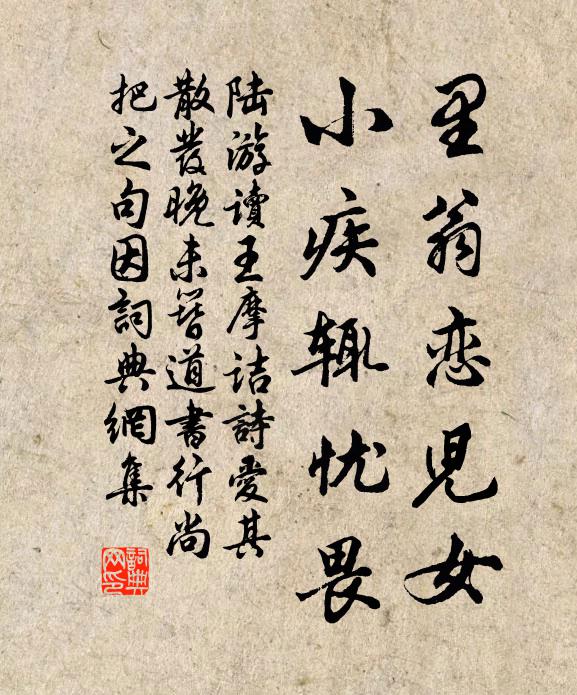 里翁恋児女
小疾辄忧畏
陆游讀王摩诘詩爱其
散發晚未簪道書行尚
把之句因詞典網集
詞典网印